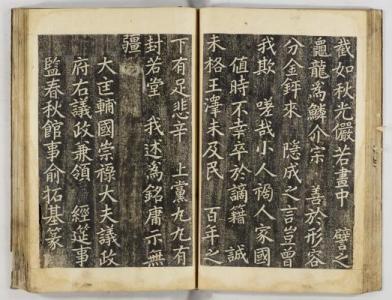 截如秋光儼若晝中　譬之
龜龍爲鱗介宗　善於形容
分金鈝來　隱成之言豈曾
我欺　嗟哉小人禍人家國
値時不幸卒於謫籍　誠
未格王澤未及民　百年之
下有足悲辛　上黨九九有
封若堂　我述爲銘庸示無
疆
大匡輔國崇祿大夫議政
府右議政兼領　經筵事
監春秋館事兪拓基篆